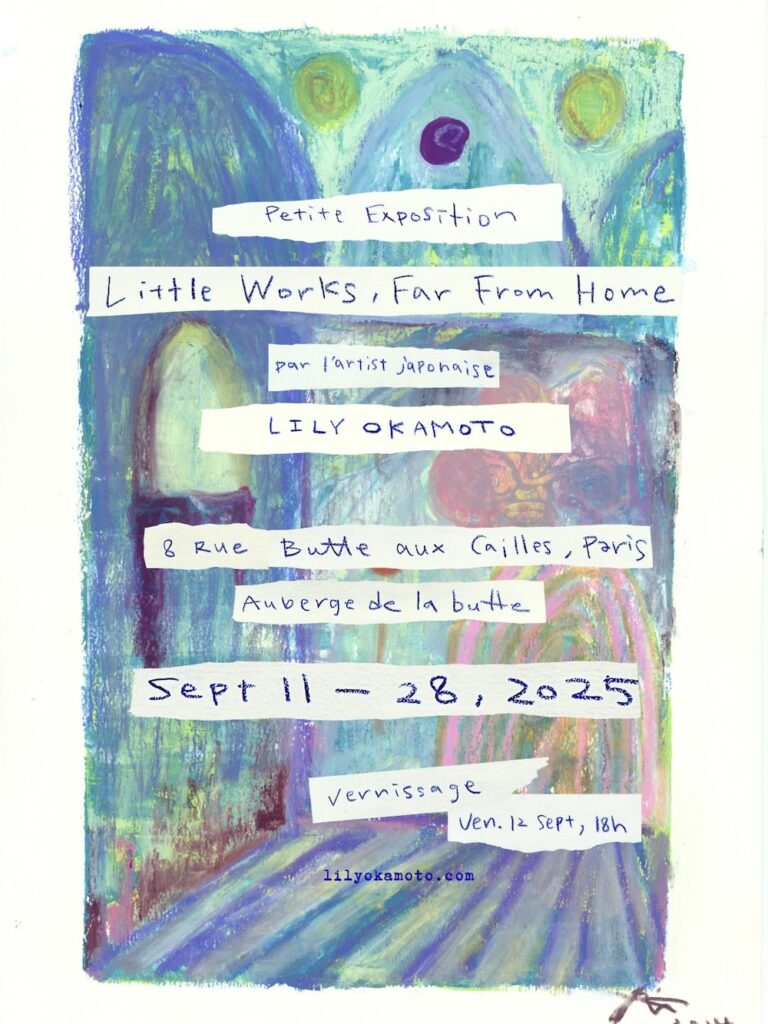 Petite Exposition
Little Works, Far From Home
par l'artist japonaise
LILY OKAMOTO
8 Rue Butte aux Cailles, Paris
Auberge de la butte
Sept 11 — 28, 2025
Vernissage
Ven. 12 Sept, 18h
lilyokamoto.com